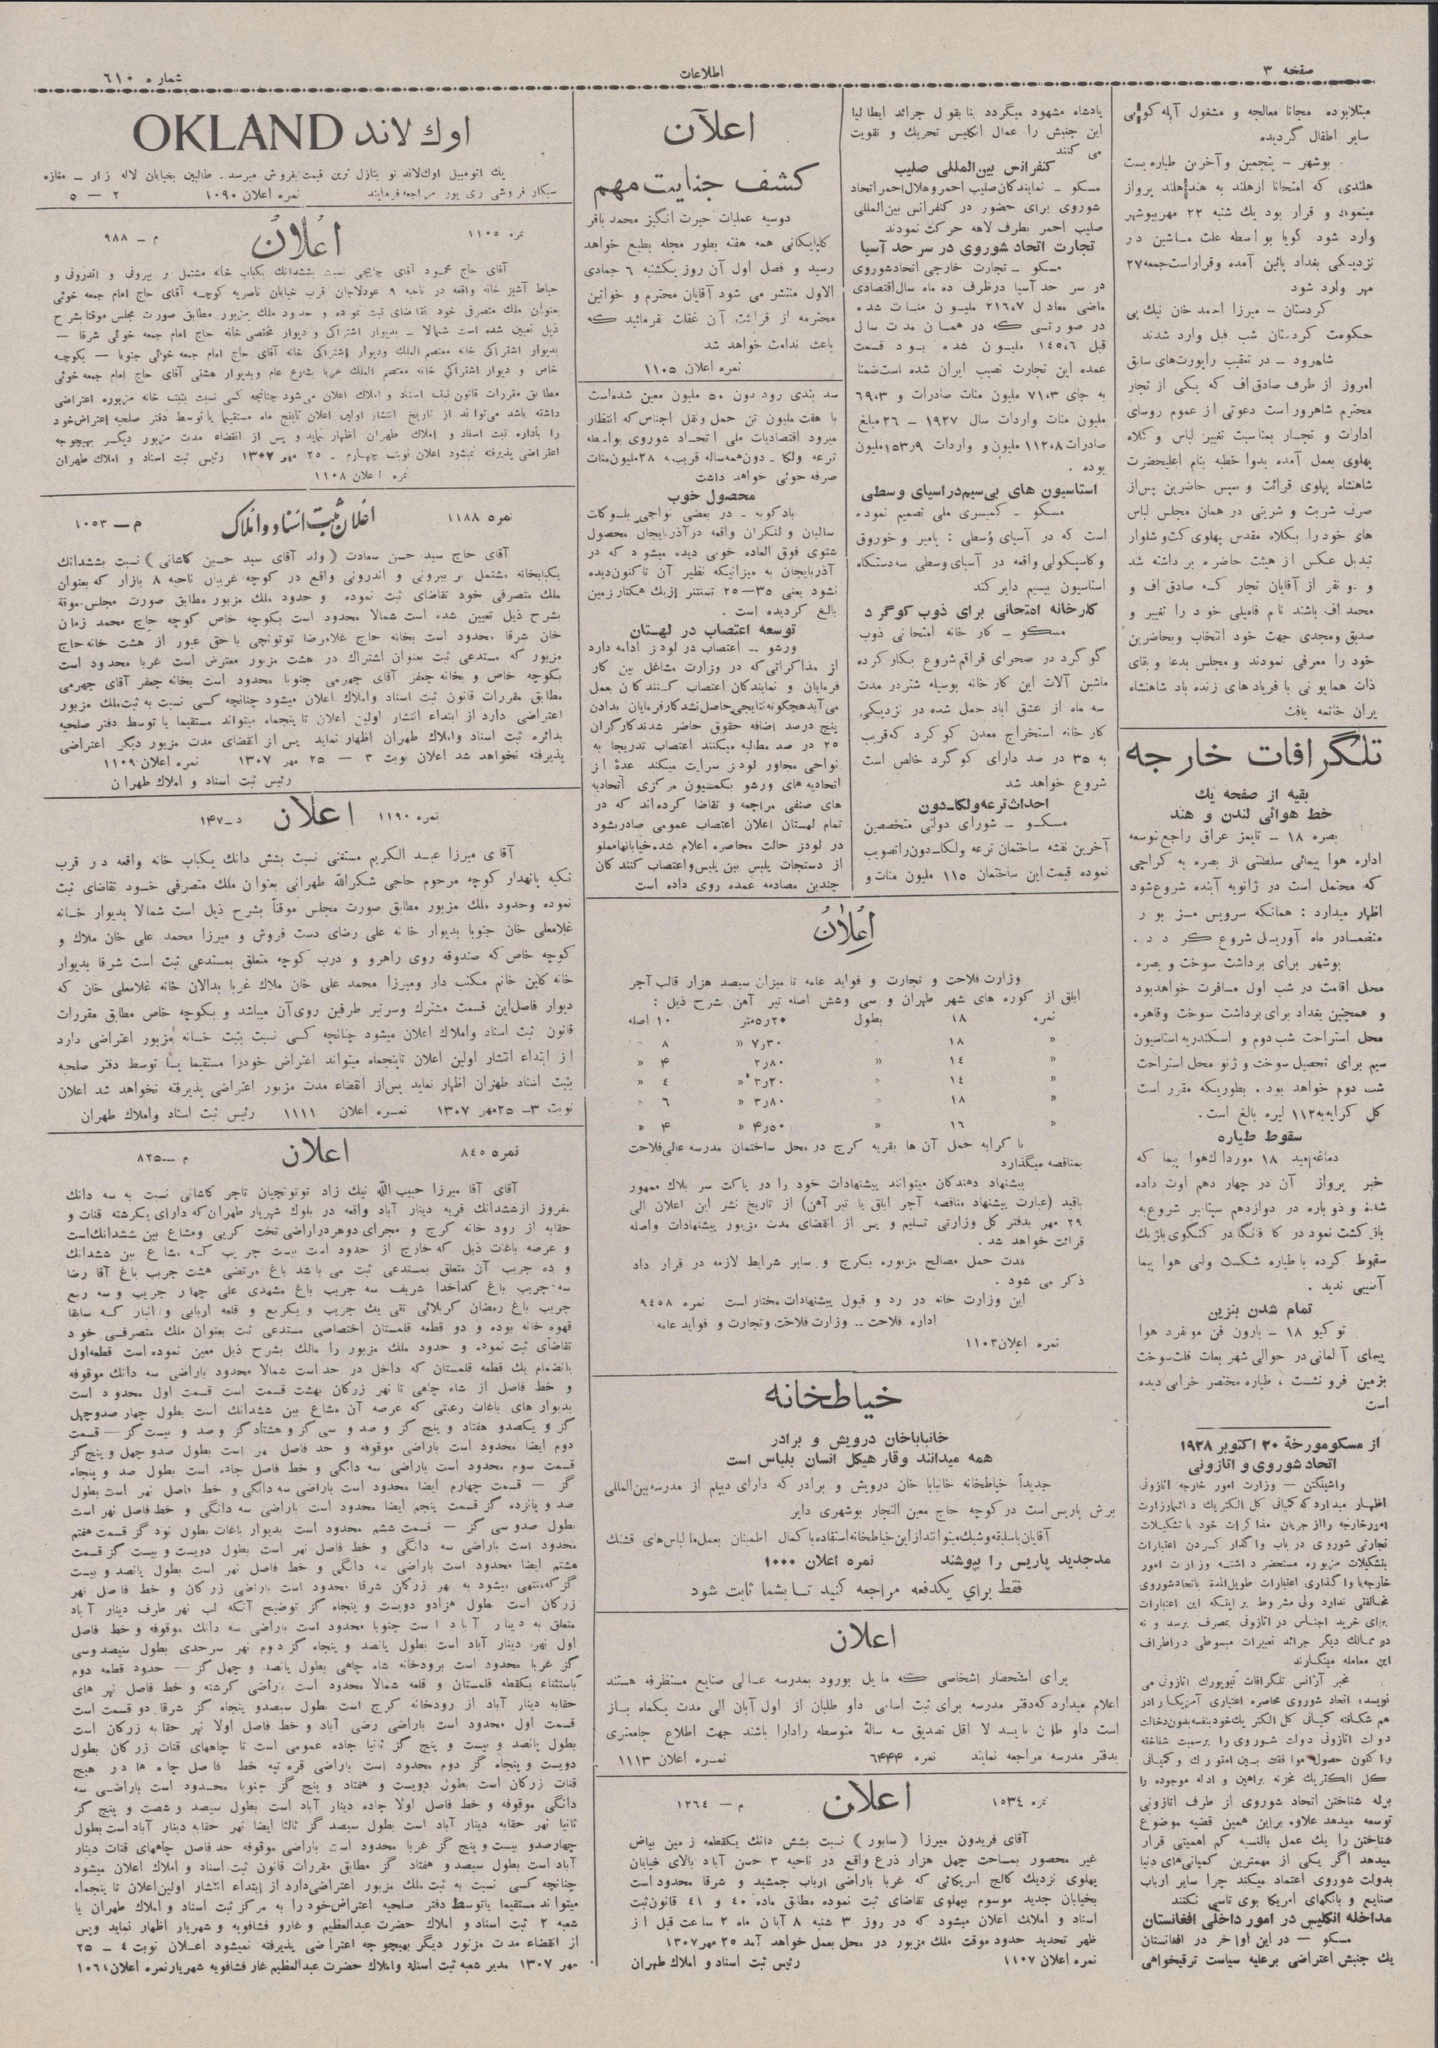 صفحه ۳
اطلاعات
شماره ۶۱۰
مبتلا بوده مجانا معالجه و مشغول آبله کوبی
سایر اطفال گردیده
بوشهر – پنجمین و آخرین طیاره پست
هلندی که امتحانا از هلند به هند هلند پرواز
مینمود و قرار بود یك شنبه ۲۲ مهر ببوشهر
وارد شود گویا بواسطه علت ماشین در
نزدیکی بغداد پائین آمده و قرار است جمعه ۲۷
مهر وارد شود
کردستان – میرزا احمد خان نیك پی
حکومت کردستان شب قبل وارد شدند
شاهرود – در تعقیب راپورت‌های سابق
امروز از طرف صادق‌اف که یکی از تجار
محترم شاهرود است دعوتی از عموم روسای
ادارات و تجار بمناسبت تغییر لباس و کلاه
پهلوی بعمل آمده بدوا خطبه بنام اعلیحضرت
شاهنشاه پهلوی قرائت و سپس حاضرین پس از
صرف شربت و شیرینی در همان مجلس لباس
های خود را بکلاه مقدس پهلوی کت و شلوار
تبدیل عکس از هیئت حاضره بر داشته شد
و دو نفر از آقایان تجار که صادق‌اف و
محمد‌اف باشند نام فامیلی خود را تغییر و
صدیق و مجدی جهت خود انتخاب و بحاضرین
خود را معرفی نمودند و مجلس بدعا و بقای
ذات همایونی با فریاد های زنده باد شاهنشاه
ایران خاتمه یافت
تلگرافات خارجه
بقیه از صفحه یك
خط هوائی لندن و هند
بصره ۱۸ – تایمز عراق راجع بتوسعه
اداره هوا پیمائی سلطنتی از بصره به کراچی
که محتمل است در ژانویه آینده شروع شود
اظهار میدارد : همانکه سرویس مزبور
منضما در ماه آوریل شروع کردد .
بوشهر برای برداشت سوخت و بصره
محل اقامت در شب اول مسافرت خواهد بود
و همچنین بغداد برای برداشت سوخت وقاهره
محل استراحت شب دوم و اسکندریه استاسیون
سیم برای تحصیل سوخت و ژنو محل استراحت
شب دوم خواهد بود . بطوریکه مقرر است
کل کرایه به ۱۱۲ لیره بالغ است .
سقوط طیاره
خبر پرواز آن در چهار دهم اوت داده
شده و دوباره در دوازدهم سپتامبر شروع به
بازگشت نمود در کافنگا در کنگوی بلژیك
سقوط کرده با طیاره شکست ولی هوا پیما
آسیبی ندید .
تمام شدن بنزین
توکیو ۱۸ – بارون فن هونفرد هوا
پیمای آلمانی در حوالی شهر بعلت قلت سوخت
بزمین فرو نشست ، طیاره مختصر خرابی دیده
است
از مسکو مورخة ۲۰ اکتوبر ۱۹۲۸
اتحاد شوروی و اتازونی
واشینگتن – وزارت امور خارجه اتازونی
اظهار میدارد که کمپانی کل الکتریك دائما وزارت
امور خارجه را از جریان مذاکرات خود با تشکیلات
تجارتی شوروی در باب واگذار کردن اعتبارات
بتشکیلات مزبوره مستحضر داشته وزارت امور
خارجه با واگذاری اعتبارات طویل المدة باتحاد شوروی
مخالفتی ندارد ولی مشروط بر اینکه این اعتبارات
برای خرید اجناس در اتازونی بمصرف برسد و نه
در ممالك دیگر جرائد تعبیرات مبسوطی در اطراف
این معامله مینگارند
مخبر آژانس تلگرافات نیویورك اتازونی می
نویسد: اتحاد شوروی محاصره اعتباری آمریکا را در
هم شکافته کمپانی کل الکتریك خود بنفسه بدون دخالت
دولت اتازونی دولت شوروی را برسمیت شناخته
و اکنون حصول موافقت بین امتورك و کمپانی
کل الکتریك مخزنه براهین و ادله موجوده را
برله شناختن اتحاد شوروی از طرف اتازونی
توسعه میدهد علاوه براین همین قضیه موضوع
شناختن را یك عمل بالنسبه کم اهمیتی قرار
میدهد اگر یکی از مهمترین کمپانی‌های دنیا
بدولت شوروی اعتماد میکند چرا سایر ارباب
صنایع و بانکهای امریکا بوی تاسی نکنند
مداخله انگلیس در امور داخلی افغانستان
مسکو – در این اواخر در افغانستان
یك جنبش اعتراضی برعلیه سیاست ترقیخواهی
پادشاه مشهود میگردد بنا بقول جرائد ایطالیا
این جنبش را عمال انگلیس تحریك و تقویت
می کنند
کنفرانس بین‌المللی صلیب
مسکو – نمایندگان صلیب احمر و هلال احمر اتحاد
شوروی برای حضور در کنفرانس بین‌المللی
صلیب احمر بطرف لاهه حرکت نمودند
تجارت اتحاد شوروی در سرحد آسیا
مسکو – تجارت خارجی اتحاد شوروی
در سر حد آسیا در ظرف ده ماه سال اقتصادی
ماضی معادل ۲۱۶،۷ ملیون منات شده
در صورتی که در همان مدت سال
قبل ۱۴۵،۶ ملیون شده بود قسمت
عمده این تجارت نصیب ایران شده است ضمنا
به جای ۷۱،۳ ملیون منات صادرات و ۶۹،۳
ملیون منات واردات سال ۱۹۲۷ – ۲۶ مبلغ
صادرات ۱۱۲،۸ ملیون و واردات ۱۵۳٫۹ ملیون
بوده .
استاسیون های بی‌سیم در اسیای وسطی
مسکو – کمیسری ملی تصمیم نموده
است که در آسیای وسطی : پامیر و خوروق
و کاسیکولی واقعه در آسیای وسطی سه دستگاه
استاسیون بیسیم دایر کند
کارخانه امتحانی برای ذوب کوگرد
مسکو – کار خانه امتحانی ذوب
گوگرد در صحرای قراقم شروع بکار کرده
ماشین آلات این کارخانه بوسیله شتر در مدت
سه ماه از عشق آباد حمل شده در نزدیکی
کار خانه استخراج معدن گوگرد که قریب
به ۳۵ در صد دارای گوگرد خالص است
شروع خواهد شد
احداث ترعه ولگا–دون
مسکو – شورای دولتی متخصصین
آخرین نقشه ساختمان ترعه ولگا–دون را تصویب
نموده قیمت این ساختمان ۱۱۵ ملیون منات و
اعلان
کشف جنایت مهم
دوسیه عملیات حیرت انگیز محمد باقر
گلپایگانی همه هفته بطور مجله بطبع خواهد
رسید و فصل اول آن روز یکشنبه ۶ جمادی
الاول منتشر می شود آقایان محترم و خوانین
محترمه از قرائت آن غفلت نفرمائید که
باعث ندامت خواهد شد
نمره اعلان ۱۱۰۵
سد بندی رود دون ۵۰ ملیون معین شده است
با هفت ملیون تن حمل و نقل اجناس که انتظار
میرود اقتصادیات ملی اتحاد شوروی بواسطه
ترعه ولگا – دون همه ساله قریب به ۲۸ ملیون منات
صرفه جوئی خواهد داشت
محصول خوب
بادکوبه – در بعضی نواحی بلوکات
سالیان و لنکران واقعه در آذربایجان محصول
شتوی فوق العاده خوبی دیده میشود که در
آذربایجان به میزانیکه نظیر آن تاکنون دیده
نشود یعنی ۳۵–۲۵ تسنتنر از یك هکتار زمین
بالغ گردیده است .
توسعه اعتصاب در لهستان
ورشو – اعتصاب در لودز ادامه دارد
از مذاکراتی که در وزارت مشاغل بین کار
فرمایان و نمایندگان اعتصاب کنندگان بعمل
می‌آید هیچگونه نتایجی حاصل نشد کارفرمایان بدادن
پنج درصد اضافه حقوق حاضر شدند کارگران
۲۵ در صد مطالبه میکنند اعتصاب تدریجا به
نواحی مجاور لودز سرایت میکند عدة از
اتحادیه های ورشو بکمیسیون مرکزی اتحادیه
های صنفی مراجعه و تقاضا کرده‌اند که در
تمام لهستان اعلان اعتصاب عمومی صادر بشود
در لودز حالت محاصره اعلام شد. خیابانها مملو
از دستجات پلیس بین پلیس و اعتصاب کنندگان
چندین مصادمه عمده روی داده است
اعلان
وزارت فلاحت و تجارت و فواید عامه تا میزان سیصد هزار قالب آجر
ابلق از کوره های شهر طهران و سی وشش اصله تیر آهن شرح ذیل :
نمره ۱۸ بطول ۵٫۲۰ متر ۱۰ اصله
« ۱۸ « ۷٫۳۰ « ۸ «
« ۱۴ « ۲٫۸۰ « ۴ «
« ۱۴ « ۳٫۲۰ « ۴ «
« ۱۸ « ۳٫۸۰ « ۶ «
« ۱۶ « ۴٫۵۰ « ۴ «
با کرایه حمل آن ها بقریه کرج در محل ساختمان مدرسه عالی فلاحت
بمناقصه میگذارد
پیشنهاد دهندگان میتوانند پیشنهادات خود را در پاکت سر بلاك ممهور
باقید (عبارت پیشنهاد مناقصه آجر ابلق یا تیر آهن) از تاریخ نشر این اعلان الی
۲۹ مهر بدفتر کل وزارتی تسلیم و پس از انقضای مدت مزبور پیشنهادات واصله
قرائت خواهد شد .
مدت حمل مصالح مزبوره بکرج و سایر شرایط لازمه در قرار داد
ذکر می شود .
این وزارت خانه در رد و قبول پیشنهادات مختار است نمره ۹۴۵۸
اداره فلاحت – وزارت فلاحت وتجارت و فواید عامه
نمره اعلان ۱۱۰۳
خیاطخانه
خانباباخان درویش و برادر
همه میدانند وقار هیکل انسان بلباس است
جدیداً خیاطخانه خانبابا خان درویش و برادر که دارای دیپلم از مدرسه بین‌المللی
برش پاریس است در کوچه حاج معین التجار بوشهری دایر
آقایان باسلیقه و شیك میتوانند از این خیاطخانه استفاده با کمال اطمینان بعمل ما لباس‌های قشنك
مد جدید پاریس را بپوشند نمره اعلان ۱۰۰۰
فقط برای یکدفعه مراجعه کنید تا بشما ثابت شود
اعلان
برای استحضار اشخاصی که مایل بورود بمدرسه عالی صنایع مستظرفه هستند
اعلام میدارد که دفتر مدرسه برای ثبت اسامی داو طلبان از اول آبان الی مدت یکماه باز
است داو طلبان باید لا اقل تصدیق سه سالهٔ متوسطه را دارا باشند جهت اطلاع جامعتری
بدفتر مدرسه مراجعه نمایند نمره ۶۴۴۴ نمره اعلان ۱۱۱۳
نمره ۱۵۳۴ اعلان م – ۱۲۶۴
آقای فریدون میرزا (سابور) نسبت بشش دانك یکقطعه زمین بیاض
غیر محصور بمساحت چهل هزار ذرع واقع در ناحیه ۳ حسن آباد بالای خیابان
پهلوی نزدیك کالج امریکائی که غربا باراضی ارباب جمشید و شرقا محدود است
بخیابان جدید موسوم بپهلوی تقاضای ثبت نموده مطابق ماده ۴۰ و ۴۱ قانون ثبت
اسناد و املاك اعلان میشود که در روز ۳ شنبه ۸ آبان ماه ۲ ساعت قبل از
ظهر تحدید حدود موقت ملك مزبور در محل بعمل خواهد آمد ۲۵ مهر ۱۳۰۷
نمره اعلان ۱۱۰۷ رئیس ثبت اسناد و املاك طهران
اوك لاند OKLAND
یك اتومبیل اوك‌لاند نو بنازل ترین قیمت بفروش میرسد. طالبین بخیابان لاله زار – مغازه
سیگار فروشی ری پور مراجعه فرمایند نمره اعلان ۱۰۹۰ ۲ – ۵
نمره ۱۱۰۵ اعلان م – ۹۸۸
آقای حاج محمود آقای چایچی نسبت بششدانك یکباب خانه مشتمل بر بیرونی و اندرونی و
حیاط آشپز خانه واقعه در ناحیه ۹ عودلاجان قرب خیابان ناصریه کوچه آقای حاج امام جمعه خوئی
بعنوان ملك متصرفی خود تقاضای ثبت نموده و حدود ملك مزبور مطابق صورت مجلس موقتا بشرح
ذیل تعیین شده است شمالا – بدیوار اشتراکی و دیوار مختصی خانه حاج امام جمعه خوئی شرقا –
بدیوار اشتراکی خانه معتصم الملك و دیوار اشتراکی خانه آقای حاج امام جمعه خوئی جنوبا – بکوچه
خاص و دیوار اشتراکی خانه معتصم الملك غربا بشارع عام و بدیوار هشتی آقای حاج امام جمعه خوئی
مطابق مقررات قانون ثبت اسناد و املاك اعلان می‌شود چنانچه کسی نسبت بثبت خانه مزبوره اعتراضی
داشته باشد می‌تواند از تاریخ انتشار اولین اعلان تا پنج ماه مستقیما یا توسط دفتر صلحیه اعتراض خود
را باداره ثبت اسناد و املاك طهران اظهار نماید و پس از انقضاء مدت مزبور دیگر بهیچوجه
اعتراضی پذیرفته نمیشود اعلان نوبت چهارم – ۲۵ مهر ۱۳۰۷ رئیس ثبت اسناد و املاك طهران
نمره اعلان ۱۱۰۸
نمره ۱۱۸۸ اعلان ثبت اسناد و املاك م – ۱۰۵۳
آقای حاج سید حسن سعادت (ولد آقای سید حسین کاشانی) نسبت بششدانك
یکبابخانه مشتمل بر بیرونی و اندرونی واقع در کوچه غریبان ناحیه ۸ بازار که بعنوان
ملك متصرفی خود تقاضای ثبت نموده و حدود ملك مزبور مطابق صورت مجلس موقة
بشرح ذیل تعیین شده است شمالا محدود است بکوچه خاص کوچه حاج محمد زمان
خان شرقا محدود است بخانه حاج غلامرضا توتونچی با حق عبور از هشت خانه حاج
مزبور که مستدعی ثبت بعنوان اشتراك در هشت مزبور معترض است غربا محدود است
بکوچه خاص و بخانه جعفر آقای جهرمی جنوبا محدود است بخانه جعفر آقای جهرمی
مطابق مقررات قانون ثبت اسناد و املاك اعلان میشود چنانچه کسی نسبت به ثبت ملك مزبور
اعتراضی دارد از ابتداء انتشار اولین اعلان تا پنجماه میتواند مستقیما یا توسط دفتر صلحیه
بدائره ثبت اسناد و املاك طهران اظهار نماید پس از انقضای مدت مزبور دیگر اعتراضی
پذیرفته نخواهد شد اعلان نوبت ۳ – ۲۵ مهر ۱۳۰۷ نمره اعلان ۱۱۰۹
رئیس ثبت اسناد و املاك طهران
نمره ۱۱۹۰ اعلان د – ۱۴۷
آقای میرزا عبد الکریم مستغنی نسبت بشش دانك یکباب خانه واقعه در قرب
تکیه پانهدار کوچه مرحوم حاجی شکرالله طهرانی بعنوان ملك متصرفی خود تقاضای ثبت
نموده وحدود ملك مزبور مطابق صورت مجلس موقتاً بشرح ذیل است شمالا بدیوار خانه
غلامعلی خان جنوبا بدیوار خانه علی رضای دست فروش و میرزا محمد علی خان ملاك و
کوچه خاص که صندوقه روی راهرو و درب کوچه متعلق بمستدعی ثبت است شرقا بدیوار
خانه کابن خانم مکتب دار ومیرزا محمد علی خان ملاك غربا بدالان خانه غلامعلی خان که
دیوار فاصل این قسمت مشترك وسرتیر طرفین روی آن میباشد و بکوچه خاص مطابق مقررات
قانون ثبت اسناد واملاك اعلان میشود چنانچه کسی نسبت بثبت خانه مزبور اعتراضی دارد
از ابتداء انتشار اولین اعلان تا پنجماه میتواند اعتراض خود را مستقیما یا توسط دفتر صلحیه
بثبت اسناد طهران اظهار نماید پس از انقضاء مدت مزبور اعتراضی پذیرفته نخواهد شد اعلان
نوبت ۳– ۲۵ مهر ۱۳۰۷ نمره اعلان ۱۱۱۱ رئیس ثبت اسناد و املاك طهران
نمره ۸۴۵ اعلان م – ۸۲۵
آقای آقا میرزا حبیب الله نیك زاد توتونچیان تاجر کاشانی نسبت به سه دانك
مفروز از ششدانك قریه دینار آباد واقعه در بلوك شهریار طهران که دارای یکرشته قنات و
حقابه از رود خانه کرج و مجرای دوهرز در اراضی تخت کریی و مشاع بین ششدانك است
و عرصه باغات ذیل که خارج از حدود است بیست جریب که مشاع بین ششدانك
و ده جریب آن متعلق بمستدعی ثبت می باشد باغ مرتضی هشت جریب باغ آقا رضا
سه جریب باغ کدخدا شریف سه جریب باغ مشهدی علی چهار جریب و سه ربع
جریب باغ رمضان کربلائی تقی یك جریب و یکربع و قلعه اربابی و انبار که سابقا
قهوه خانه بوده و دو قطعه قلمستان اختصاصی مستدعی ثبت بعنوان ملك متصرفی خود
تقاضای ثبت نموده و حدود ملك مزبور را مالك بشرح ذیل معین نموده است قطعه اول
بانضمام یك قطعه قلمستان که داخل در حد است شمالا محدود باراضی سه دانك موقوفه
و خط فاصل از شاه چاهی تا نهر زرکان بهشت قسمت است قسمت اول محدود است
بدیوار های باغات رعیتی که عرصه آن مشاع بین ششدانك است بطول چهار صد و چهل
گز و یکصد و هفتاد و پنج گز و صد و سی گز و هشتاد گز و صد و بیست گز – قسمت
دوم ایضا محدود است باراضی موقوفه و حد فاصل نهر است بطول صد و چهل و پنج گز
قسمت سوم محدود است باراضی سه دانگی و خط فاصل جاده است بطول صد و پنجاه
گز – قسمت چهارم ایضا محدود است باراضی سه دانگی و خط فاصل نهر است بطول
صد و پانزده گز قسمت پنجم ایضا محدود است باراضی سه دانگی و خط فاصل نهر است
بطول صد و سی گز – قسمت ششم محدود است بدیوار باغات بطول نود گز قسمت هفتم
محدود است باراضی سه دانگی و خط فاصل نهر است بطول دویست و بیست گز قسمت
هشتم ایضا محدود است باراضی سه دانگی و خط فاصل نهر است بطول پانصد و بیست
گز که منتهی میشود به نهر زرکان شرقا محدود است باراضی زرکان و خط فاصل نهر
زرکان است بطول هزار و دویست و پنجاه گز توضیح آنکه لب نهر طرف دینار آباد
متعلق به دینار آباد است جنوبا محدود است باراضی سه دانك موقوفه و خط فاصل
اول نهر دینار آباد است بطول پانصد و پنجاه گز دوم نهر سرحدی بطول سیصد و سی
گز غربا محدود است برودخانه شاه چاهی بطول پانصد و چهل گز – حدود قطعه دوم
باستثناء یکقطعه قلمستان و قلعه شمالا محدود است باراضی گرشته و خط فاصل نهر های
حقابه دینار آباد از رودخانه کرج است بطول سیصد و پنجاه گز شرقا دو قسمت است
قسمت اول محدود است باراضی رضی آباد و خط فاصل اولا نهر حقابه زرکان است
بطول پانصد و بیست و پنج گز ثانیا جاده عمومی است تا چاههای قنات زرکان بطول
دویست و پنجاه گز دوم محدود است باراضی قره تپه خط فاصل چاه ها در هیچ
قنات زرکان است بطول دویست و هفتاد و پنج گز جنوبا محدود است باراضی سه
دانگی موقوفه و خط فاصل اولا جاده دینار آباد است بطول سیصد و شصت و پنج گز
ثانیا نهر حقابه دینار آباد است بطول سیصد گز ثالثا ایضا نهر حقابه دینار آباد است بطول
چهارصد و بیست و پنج گز غربا محدود است باراضی موقوفه حد فاصل چاههای قنات دینار
آباد است بطول سیصد و هفتاد گز مطابق مقررات قانون ثبت اسناد و املاك اعلان میشود
چنانچه کسی نسبت به ثبت ملك مزبور اعتراضی دارد از ابتداء انتشار اولین اعلان تا پنجماه
میتواند مستقیما یا توسط دفتر صلحیه اعتراض خود را به مرکز ثبت اسناد و املاك طهران یا
شعبه ۲ ثبت اسناد و املاك حضرت عبدالعظیم و غار و فشافویه و شهریار اظهار نماید و پس
از انقضاء مدت مزبور دیگر بهیچوجه اعتراضی پذیرفته نمیشود اعلان نوبت ۴ – ۲۵
مهر ۱۳۰۷ مدیر شعبه ثبت اسناد و املاك حضرت عبدالعظیم غار فشافویه شهریار نمره اعلان ۱۰۶۱